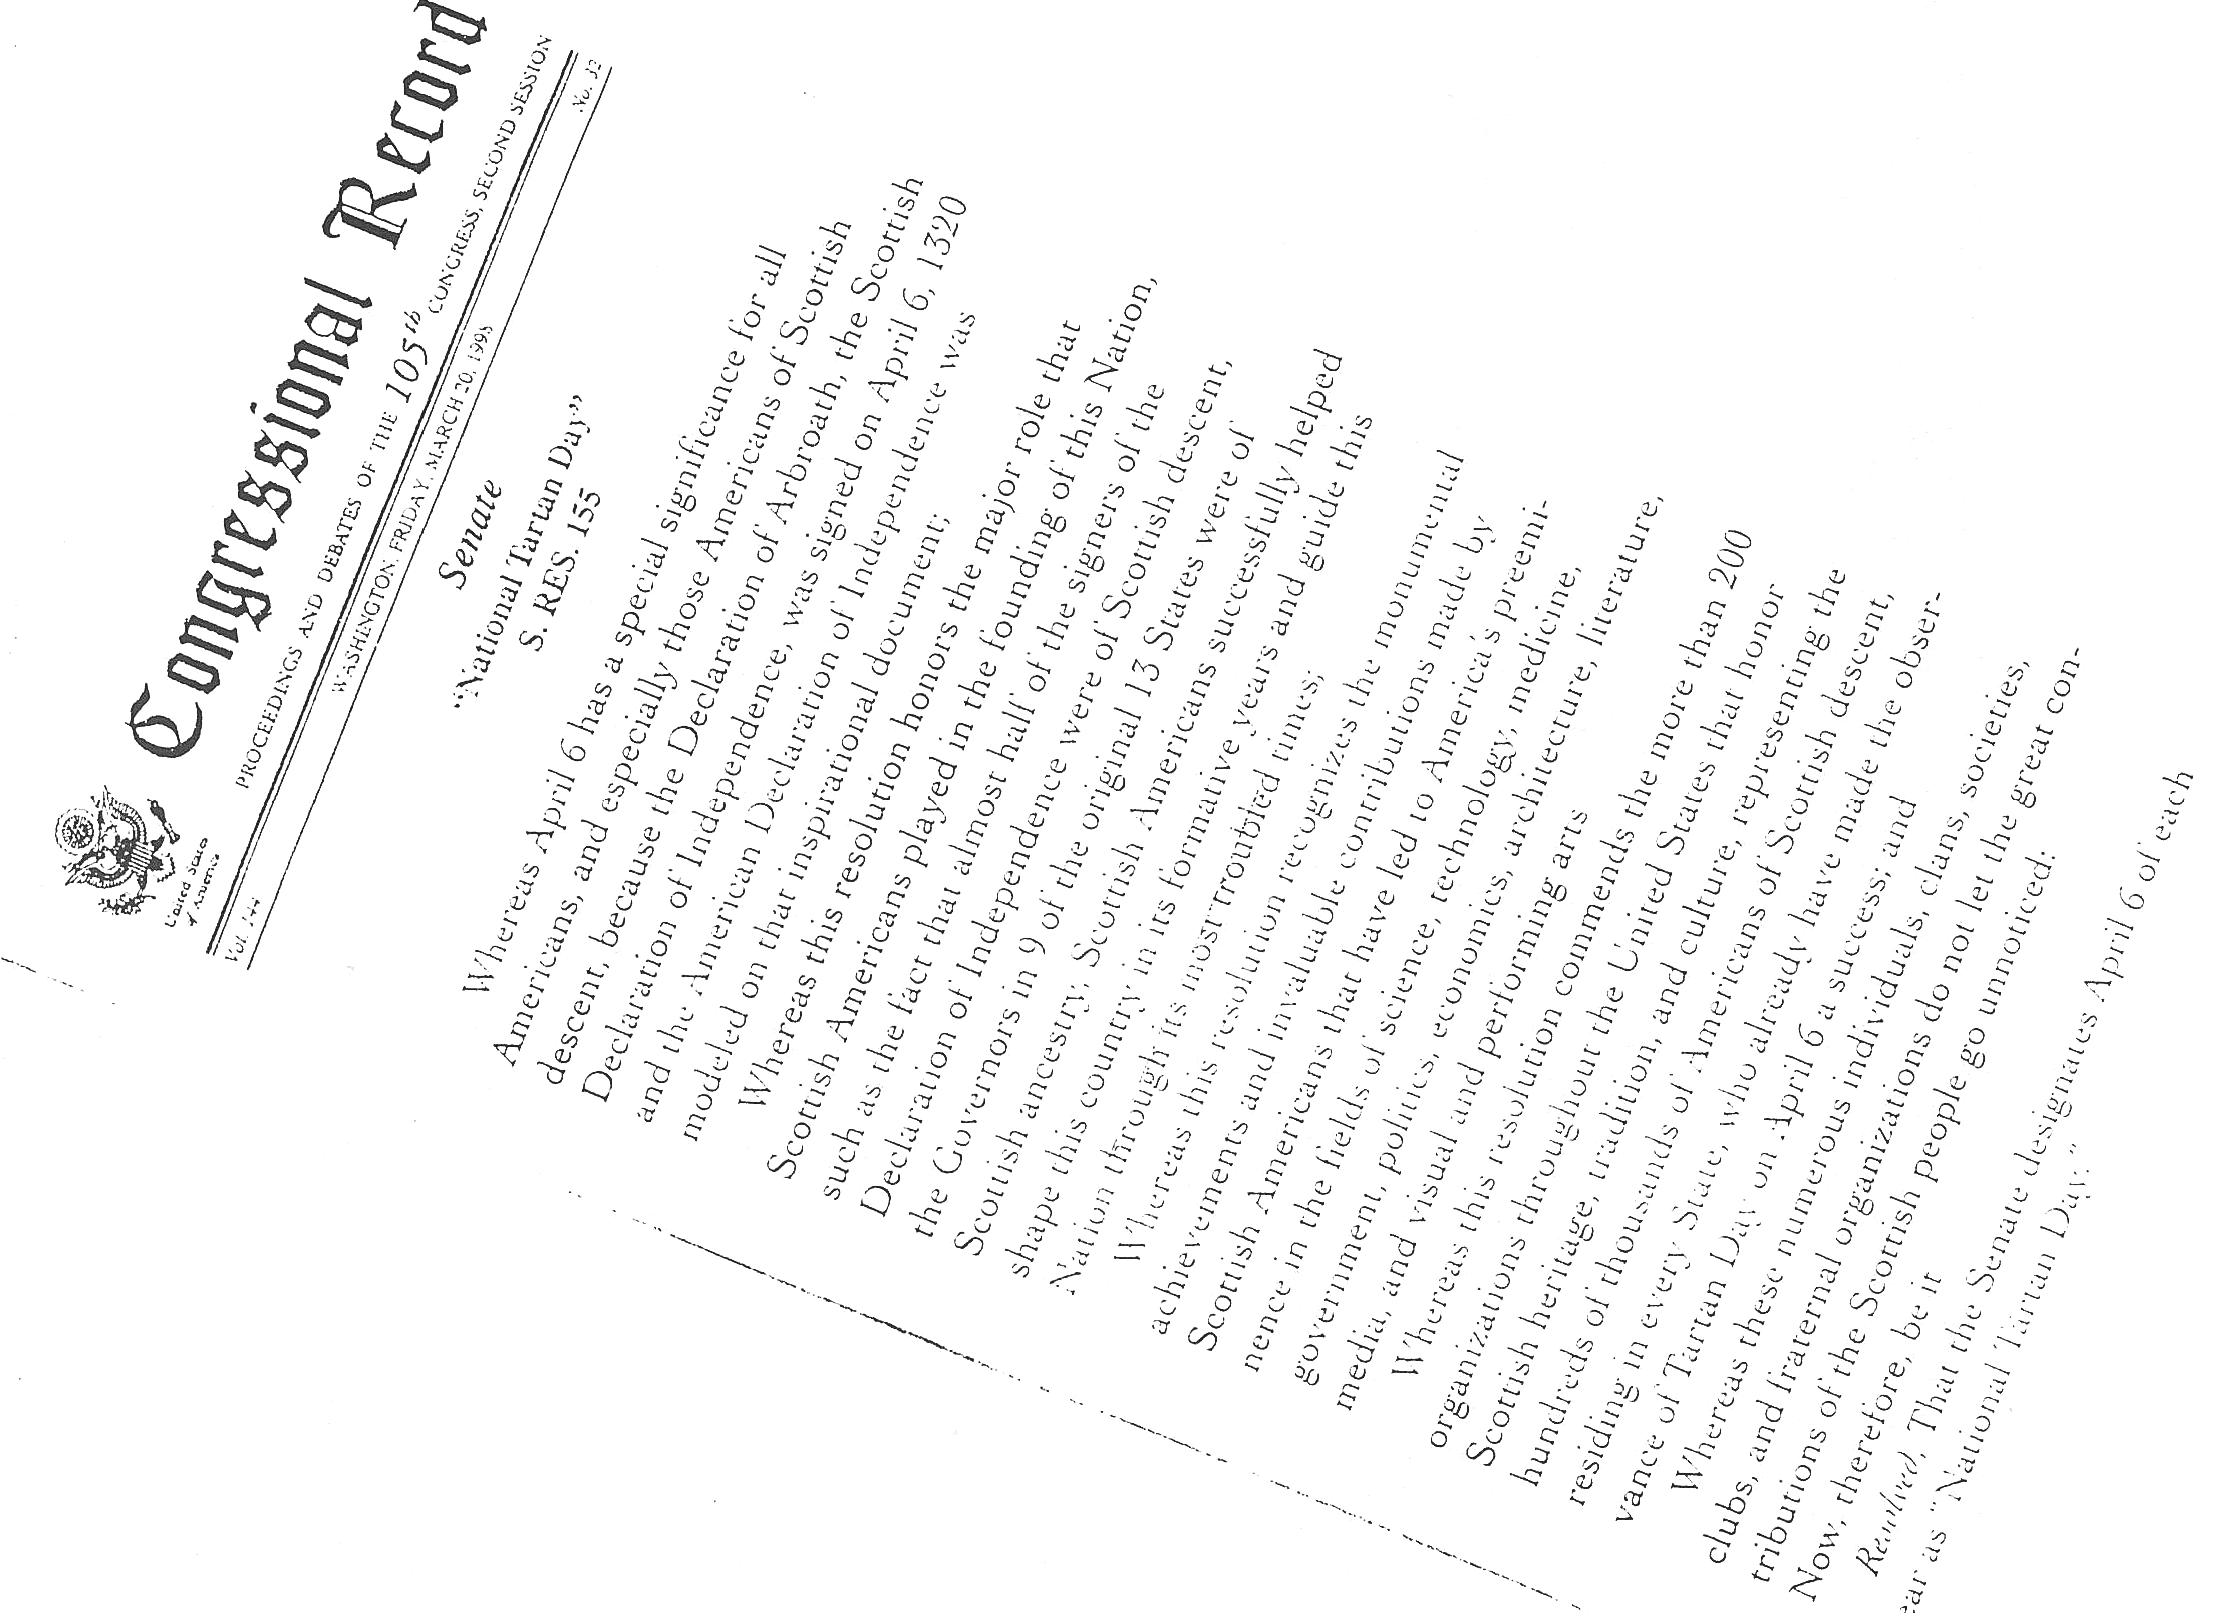 Congressional Record
United States
of America
PROCEEDINGS AND DEBATES OF THE 105th CONGRESS, SECOND SESSION
Vol. 144
WASHINGTON, FRIDAY, MARCH 20, 1998
No. 32
Senate
"National Tartan Day"
S. RES. 155
Whereas April 6 has a special significance for all
Americans, and especially those Americans of Scottish
descent, because the Declaration of Arbroath, the Scottish
Declaration of Independence, was signed on April 6, 1320
and the American Declaration of Independence was
modeled on that inspirational document;
Whereas this resolution honors the major role that
Scottish Americans played in the founding of this Nation,
such as the fact that almost half of the signers of the
Declaration of Independence were of Scottish descent,
the Governors in 9 of the original 13 States were of
Scottish ancestry, Scottish Americans successfully helped
shape this country in its formative years and guide this
Nation through its most troubled times;
Whereas this resolution recognizes the monumental
achievements and invaluable contributions made by
Scottish Americans that have led to America's preemi-
nence in the fields of science, technology, medicine,
government, politics, economics, architecture, literature,
media, and visual and performing arts
Whereas this resolution commends the more than 200
organizations throughout the United States that honor
Scottish heritage, tradition, and culture, representing the
hundreds of thousands of Americans of Scottish descent,
residing in every State, who already have made the obser-
vance of Tartan Day on April 6 a success; and
Whereas these numerous individuals, clans, societies,
clubs, and fraternal organizations do not let the great con-
tributions of the Scottish people go unnoticed:
Now, therefore, be it
Resolved, That the Senate designates April 6 of each
ear as "National Tartan Day."